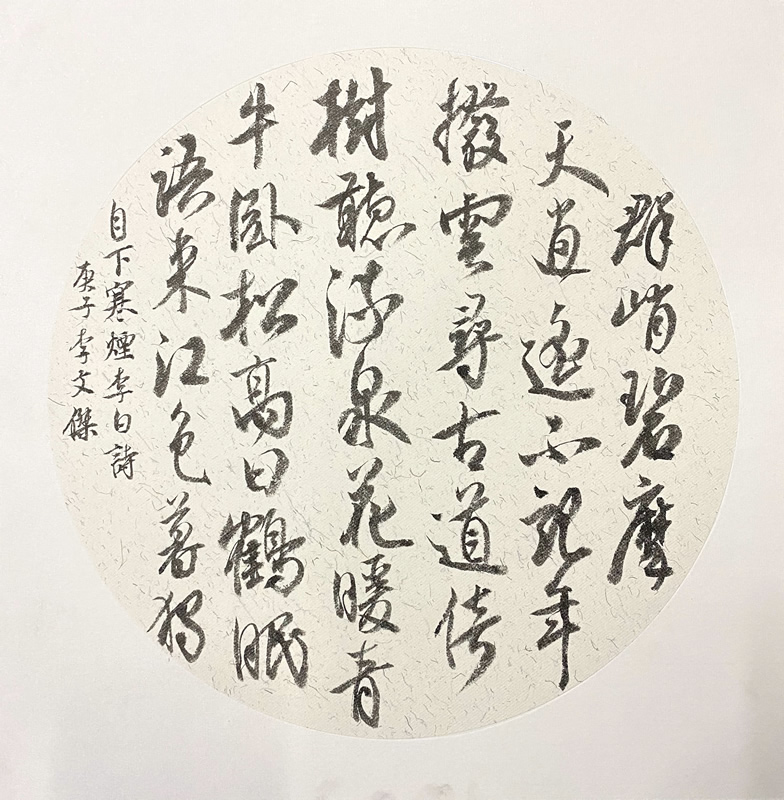 群峭碧摩
天逍遙不記年
撥雲尋古道倚
樹聽流泉花暖青
牛卧松高白鶴眠
語來江色暮獨
自下寒煙李白詩
庚子李文傑